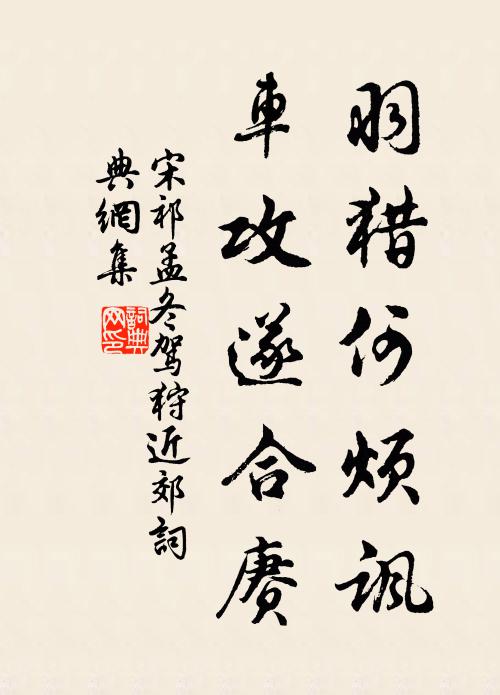 羽猎何烦讽
車攻遂合赓
宋祁孟冬驾狩近郊詞
典網集
詞典网印